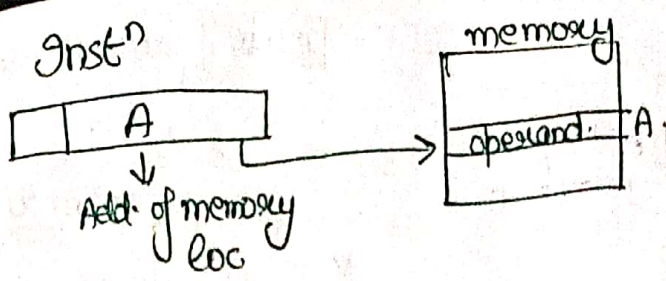 Instⁿ
memory
A
operand.
A.
Add. of memory
loc